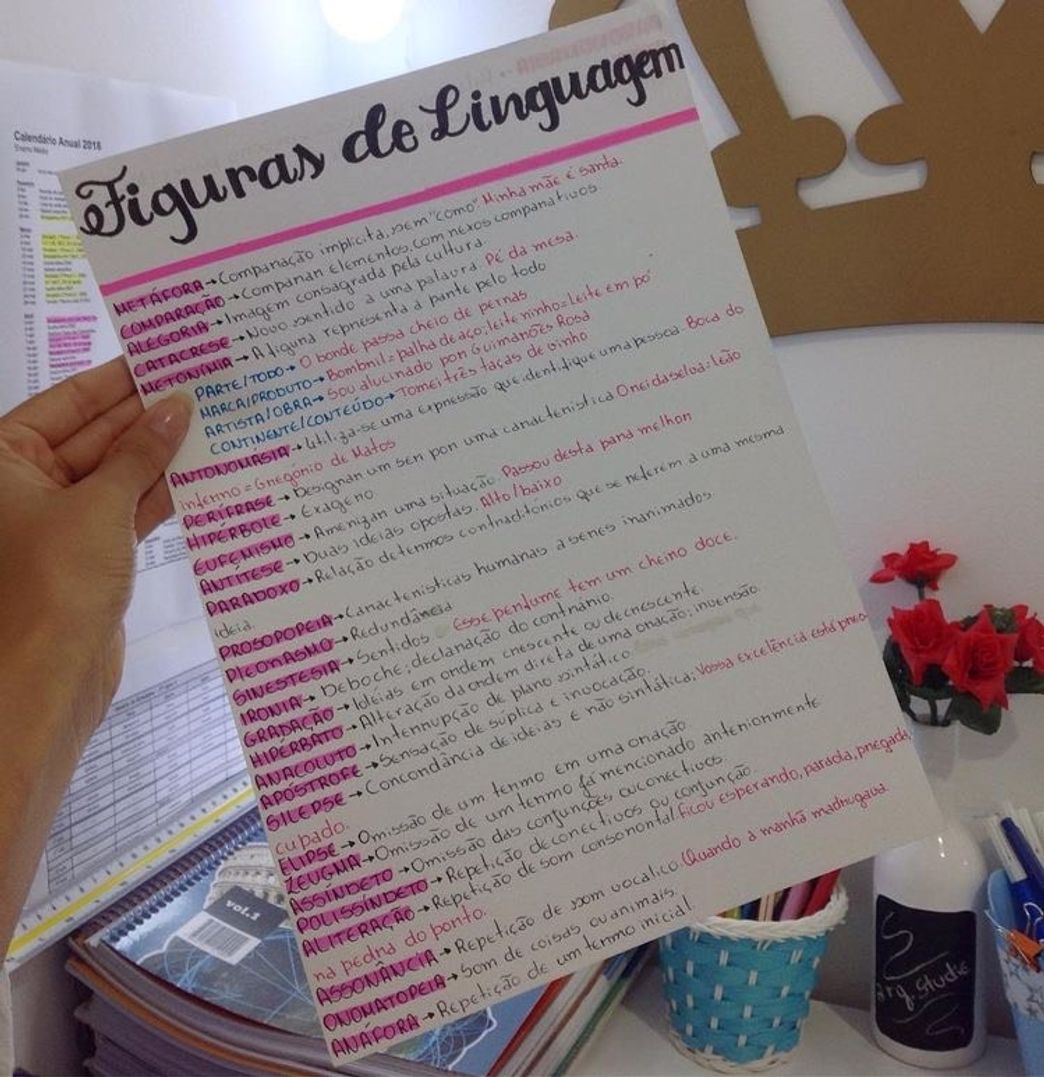 Calendário Anual 2018
Ensino Médio
Figuras de Linguagem
METÁFORA → Comparação implícita, sem "como" Minha mãe é santa.
COMPARAÇÃO → Comparar elementos com nexos comparativos.
ALEGORIA → Imagem consagrada pela cultura.
CATACRESE → Novo sentido a uma palavra. Pé da mesa.
METONÍMIA → A figura representa a parte pelo todo
PARTE/TODO → O bonde passa cheio de pernas
MARCA/PRODUTO → Bombril = palha de aço; leite ninho = leite em pó
ARTISTA/OBRA → Sou alucinado por Guimarães Rosa
CONTINENTE/CONTEÚDO → Tomei três taças de vinho
ANTONOMÁSIA → Utiliza-se uma expressão que identifique uma pessoa. Boca do
inferno = Gregório de Matos
PERÍFRASE → Designar um ser por uma característica O rei da selva: leão
HIPERBOLE → Exagero.
EUFEMISMO → Amenizar uma situação. Passou desta para melhor
ANTÍTESE → Duas ideias opostas. Alto/baixo
PARADOXO → Relação de termos contraditórios que se referem a uma mesma
ideia.
PROSOPOPEIA → Características humanas a seres inanimados.
PLEONASMO → Redundância
SINESTESIA → Sentidos Esse perfume tem um cheiro doce.
IRONIA → Deboche, declaração do contrário.
GRADAÇÃO → Ideias em ordem crescente ou decrescente
HIPÉRBATO → Alteração da ordem direta de uma oração; inversão
ANACOLUTO → Interrupção de plano sintático.
APÓSTROFE → Sensação de súplica e invocação.
SILEPSE → Concordância de ideias e não sintática; Vossa excelência está preo
cupado.
ELIPSE → Omissão de um termo em uma oração.
ZEUGMA → Omissão de um termo já mencionado anteriormente
ASSÍNDETO → Omissão das conjunções ou conectivos.
POLISSÍNDETO → Repetição de conectivos ou conjunção
ALITERAÇÃO → Repetição de som consonantal. Ficou esperando, parada, pregada
na pedra do porto.
ASSONÂNCIA → Repetição de som vocalico. Quando a manhã madrugava
ONOMATOPEIA → Som de coisas ou animais.
ANÁFORA → Repetição de um termo inicial
vol.3
arq.studie